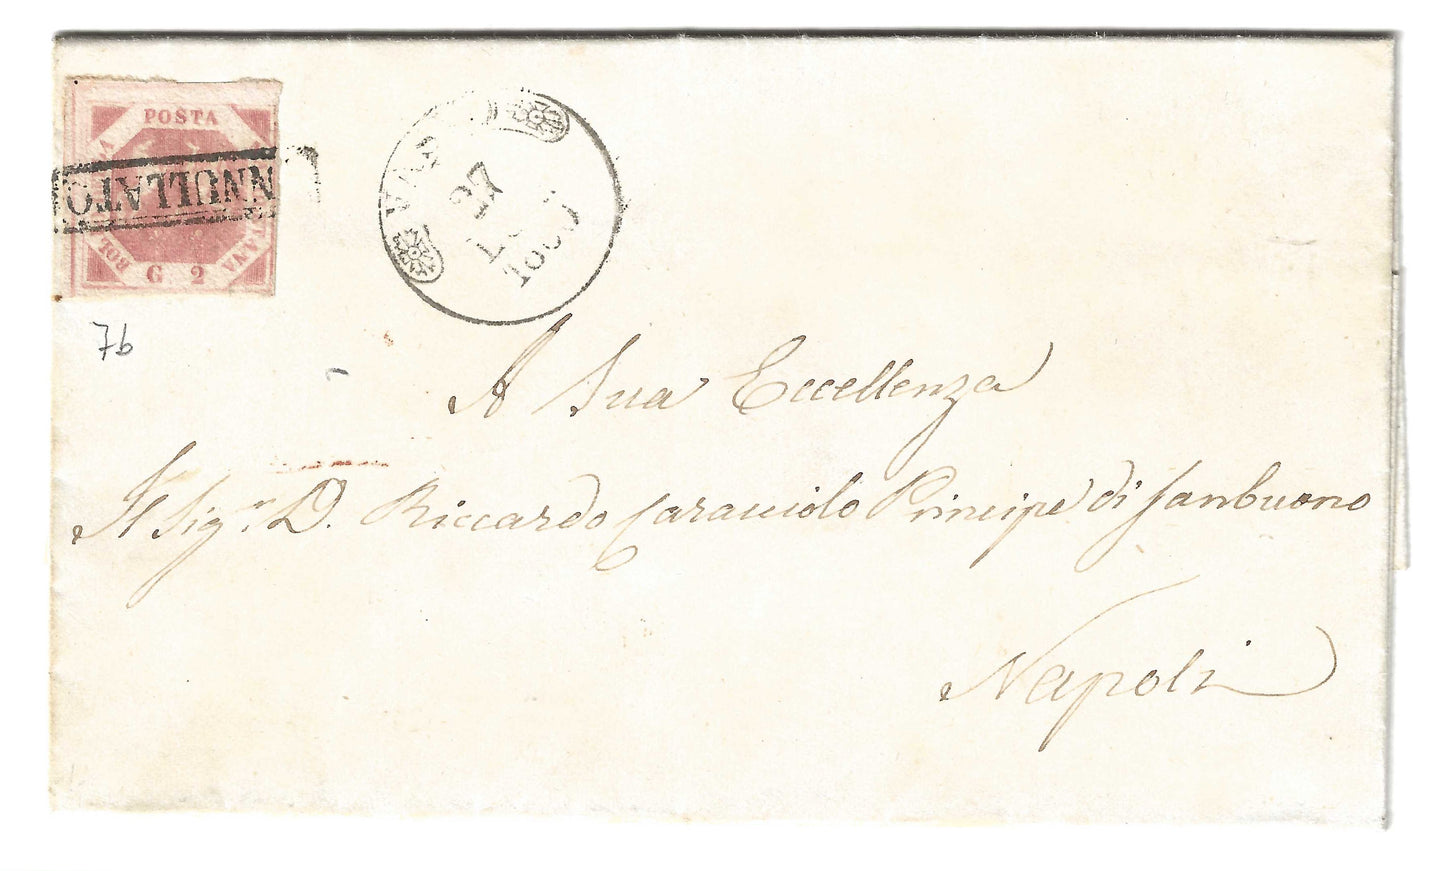 POSTA
NNULLATO
BOL
G. 2
ANA
27
7b
A Sua Eccellenza
Il Sigr. D. Riccardo Caracciolo Principe di Sanbuono
Napoli